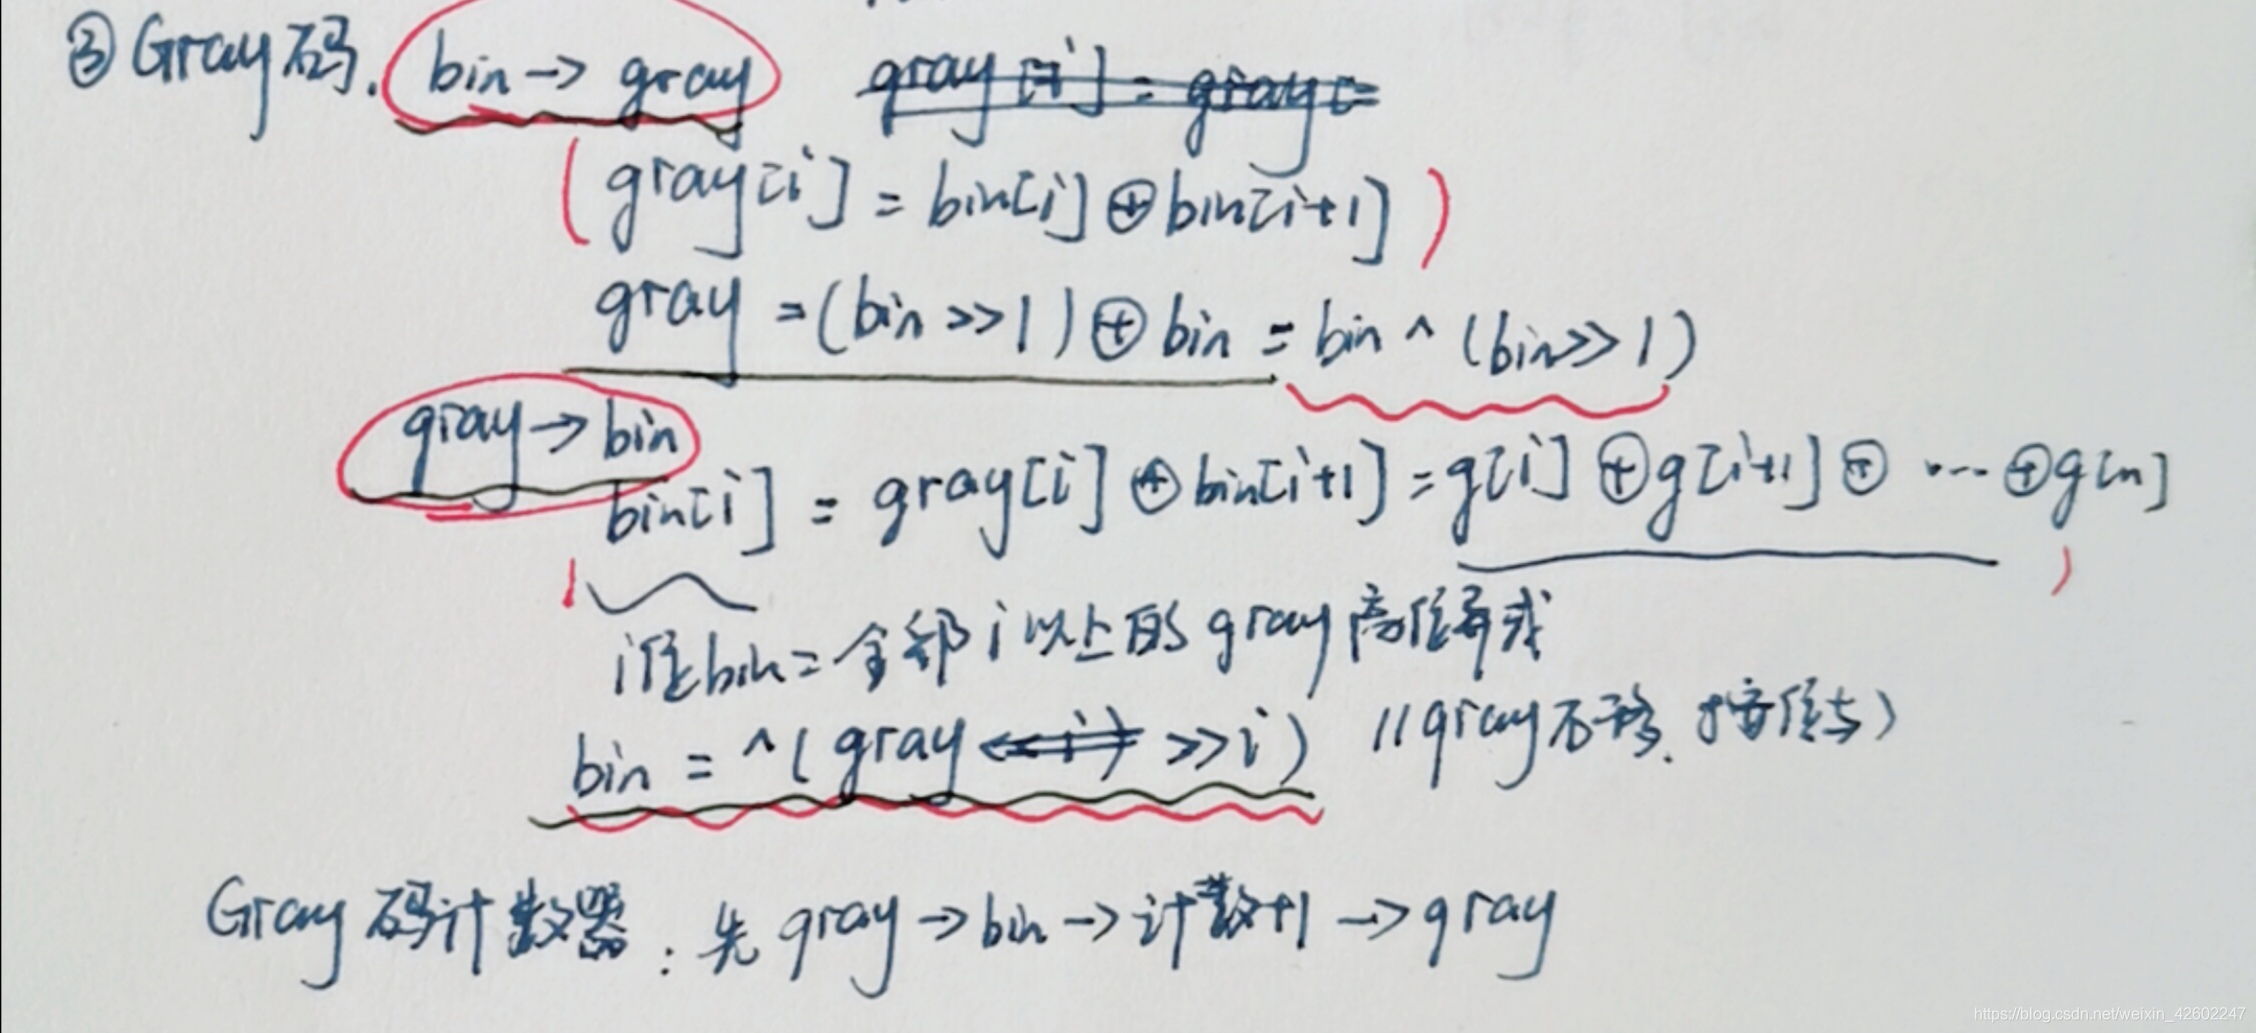 ③Gray码. bin→gray
(gray[i] = bin[i]⊕bin[i+1])
gray =(bin>>1)⊕bin = bin^(bin>>1)
gray→bin
bin[i] = gray[i]⊕bin[i+1] = g[i]⊕g[i+1]⊕ ... ⊕g[n]
i位bin=全部i以上的gray高位异或
bin = ^(gray >>i) //gray右移.按位与)
Gray码计数器:先gray→bin→计数+1→gray
https://blog.csdn.net/weixin_42602247